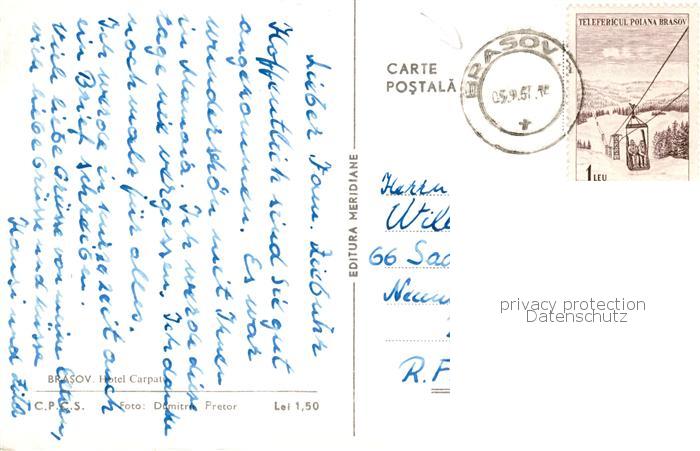 Lieber Fam. Liebuhr
Hoffentlich sind Sie gut
angekommen. Es war
wunderschön mit Ihnen
in Mamaia. Ich werde diese
tage nie vergessen. Ich danke
nochmals für alles.
Ich werde in kürze zeit auch
ein Brief schreiben.
Viele liebe Grüsse von meine Eltern,
viele liebe Grüsse und küsse
Hansi und
BRAȘOV. Hotel Carpați
C.P.C.S. Foto: Dumitru Pretor Lei 1,50
EDITURA MERIDIANE
CARTE
POȘTALĂ
BRASOV
05.9.67
TELEFERICUL POIANA BRASOV
1 LEU
Herrn
66 Saa
R.F
privacy protection
Datenschutz